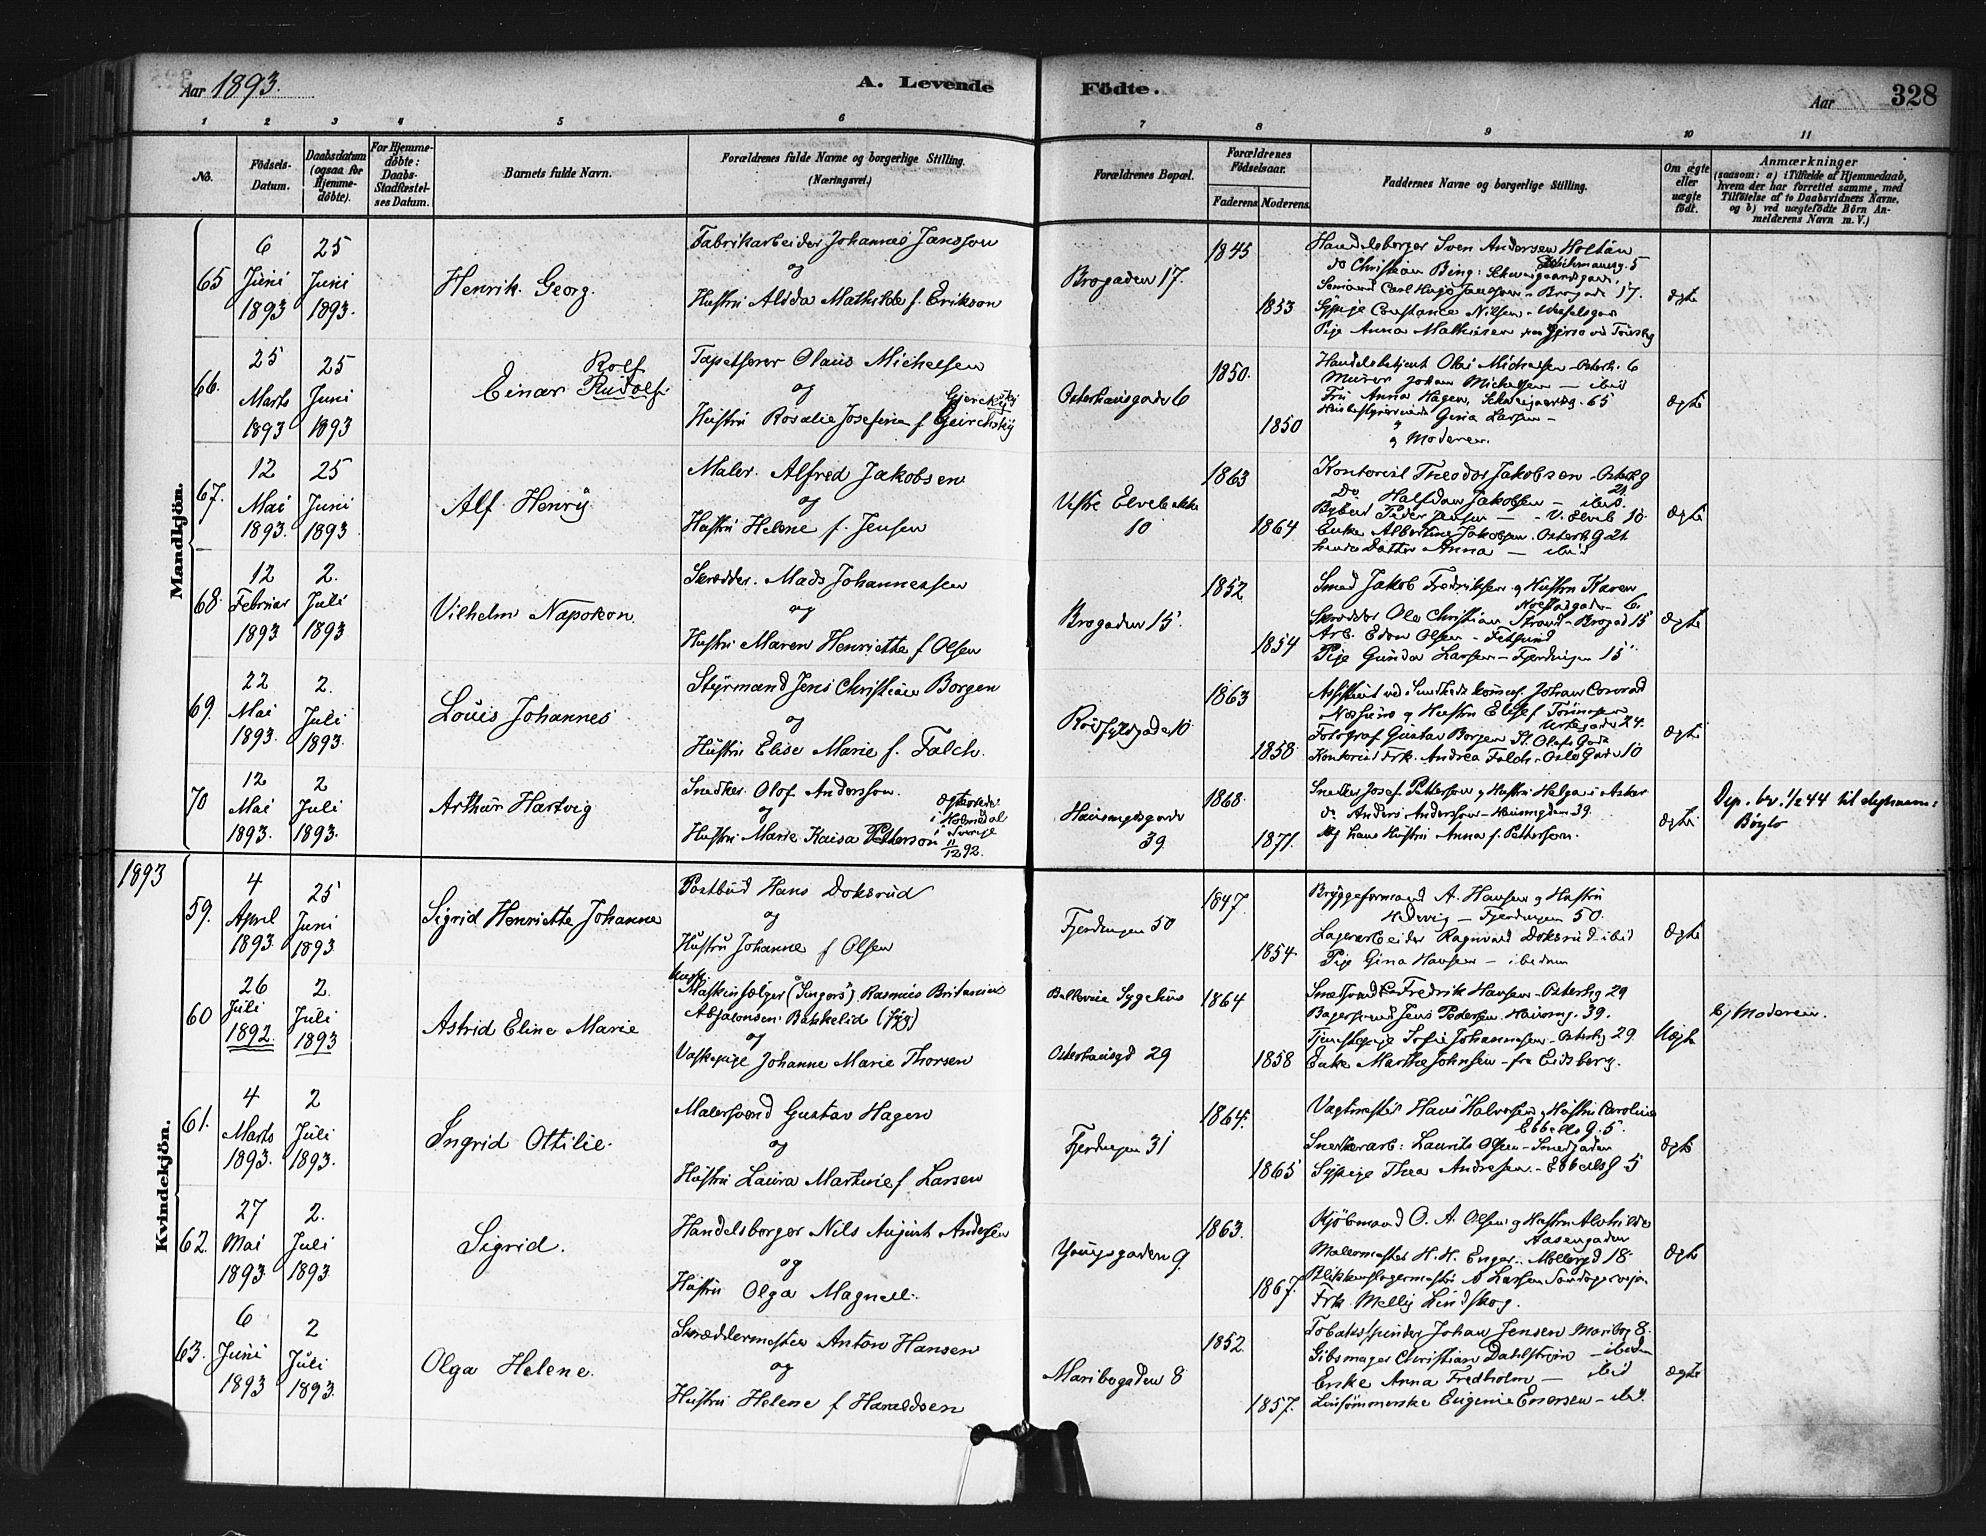 Aar 1893.
A. Levende Födte.
Aar
328
1 2 3 4 5 6 7 8 9 10 11
No.
Födsels-Datum.
Daabsdatum (ogsaa for Hjemmedöbte).
For Hjemmedöbte: Daabs-Stadfæstelses Datum.
Barnets fulde Navn.
Forældrenes fulde Navne og borgerlige Stilling. (Næringsvei.)
Forældrenes Bopæl.
Forældrenes Födselsaar.
Faderens. Moderens.
Faddernes Navne og borgerlige Stilling.
Om ægte eller uægte födt.
Anmærkninger
(saasom: a) i Tilfælde af Hjemmedaab, hvem der har forrettet samme, med Tilföielse af to Daabsvidners Navne, og b) ved uægtefödte Börn Anmelderens Navn m. V.)
Mandkjön.
65
6 Juni 1893
25 Juni 1893.
Henrik Georg.
Fabrikarbeider Johannes Jansson
og
Hustru Alida Mathilde f. Erikson
Brogaden 17.
1845
1853
Handelsborger Sven Andersen Holtan
do Christian Bing: Schweigaardsgade,
Sömand Carl Hugo Jansson - Brogade 17.
Sypige Constance Nilsen -
Pige Anna Mathisen
Ægte
66.
25 Marts 1893
25 Juni 1893
Rolf
Einar Rudolf
Tapetserer Olaus Michelsen
og
Hustru Rosalie Josefine f
Osterhausgade 6
1850.
1850
Handelsbetjent Olai Michaelsen - Osterh. 6
Murer Johan Michelsen - ibid
Fru Anna Hagen, Schweigaardsg. 65
Gina Larsen -
og Moderen.
Ægte
67.
12 Mai 1893.
25 Juni 1893
Alf Henry
Maler. Alfred Jakobsen
og
Hustru Helene f. Jensen
Vestre Elvebakke 10
1863
1864
Kontorist Theodor Jakobsen - Osterhg 21
Do Halfdan Jakobsen - ibid.
Bybud Peder Jensen - V. Elveb 10.
Enke Albertine Jakobsen. Osterhg 21.
hendes Datter Anna - ibid
Ægte
68.
12 Februar 1893
2. Juli 1893
Vilhelm Napoleon.
Skrædder. Mads Johannessen
og
Hustru Maren Henriette f Olsen
Brogaden 15.
1852
1854
Smed Jakob Fredriksen og Hustru Karen
6
Skrædder Ole Christian Strand - Brogad 15
Arb. Edon Olsen - Fetsund
Pige Gunda Larsen - Fjerdingen 15
Ægte
69.
22 Mai 1893.
2. Juli 1893.
Louis Johannes
Styrmand Jens Christian Borgen
og
Hustru Elise Marie f. Falch.
Rödfyldgade 10
1863
1858.
Assistent ved Sundheds Johan Conrad
og Hustru Elise f
Urtegaden 24.
Fotograf Gustav Borgen St. Olafs Gade
Kontorist Frk. Andrea Falch - Oslo Gade 10
Ægte
70
12 Mai 1893.
2 Juli 1893.
Arthur Hartvig
Snedker. Olof Andersson.
og
Hustru Marie Kaisa Petterson
i Sverige 11/12 92.
Hausmandsgade 39
1868.
1871.
Snedker Josef Petterson og Hustru Helga i Asker
do Anders Andersson - Hausmgden 39.
og hans Hustru Anna f. Pettersson.
Ægte
Dep. br. 1/2 44 til
1893
Kvindekjön.
59.
4 April 1893.
25 Juni 1893
Sigrid Henriette Johanne
Postbud Hans Doksrud
og
Hustru Johanne f Olsen
Fjerdingen 50
1847.
1854.
Bryggeformand A. Hansen og Hustru
Hedevig - Fjerdingen 50.
Lagerarbeider Ragnvald Doksrud ibid
Pige Gina Hansen - ibidem
Ægte
60
26 Juli 1892.
2. Juli 1893
Astrid Eline Marie
Maskinsælger (Singers) Rasmus Britanius
Absalonsen Bakkelid (Ugg)
og
Vaskepige Johanne Marie Thorsen
Bakkevie Sygehus
Osterhausgd 29
1864
1858
Fredrik Hansen - Osterhg 29
Bagersvend Jens Pedersen. Hausmg. 39.
Tjenstepige Sofie Johannesen - Osterhg 29
Enke Marthe Johnsen - fra Eidsberg.
Uægte
Moderen.
61.
4 Marts 1893.
2 Juli 1893.
Ingrid Ottilie.
Malersvend Gustav Hagen
og
Hustru Laura Martine f Larsen
Fjerdingen 31
1864.
1865
Vagtmester Hans Halvorsen og Hustru Caroline
Ebbells g. 5.
Snedkerarb: Laurits Olsen - Smedgaden
Sypige Thea Andresen - Ebbells G 5
Ægte
62.
27 Mai 1893.
2. Juli 1893.
Sigrid.
Handelsborger Nils August Andersen
og
Hustru Olga Magnell.
Youngsgaden 9.
1863.
1867.
Kjöbmand O. A. Olsen og Hustru Alvhilde
Aasengaden
Malermester H. H. Enger. Möllergd 18
Blikkenslagermester A Larsen
Frk. Melly Lindskog.
Ægte
63.
6 Juni 1893
2 Juli 1893.
Olga Helene.
Skræddermester Anton Hansen
og
Hustru Helene f Haraldsen
Maribogaden 8
1852.
1857.
Tobaksspinder Johan Jensen Maribog 8.
Gibsmager Christian Dahlström - ibidem
Enke Anna Fredholm - ibid
Linsömmerske Eugenie Enersen - ibd.
Ægte